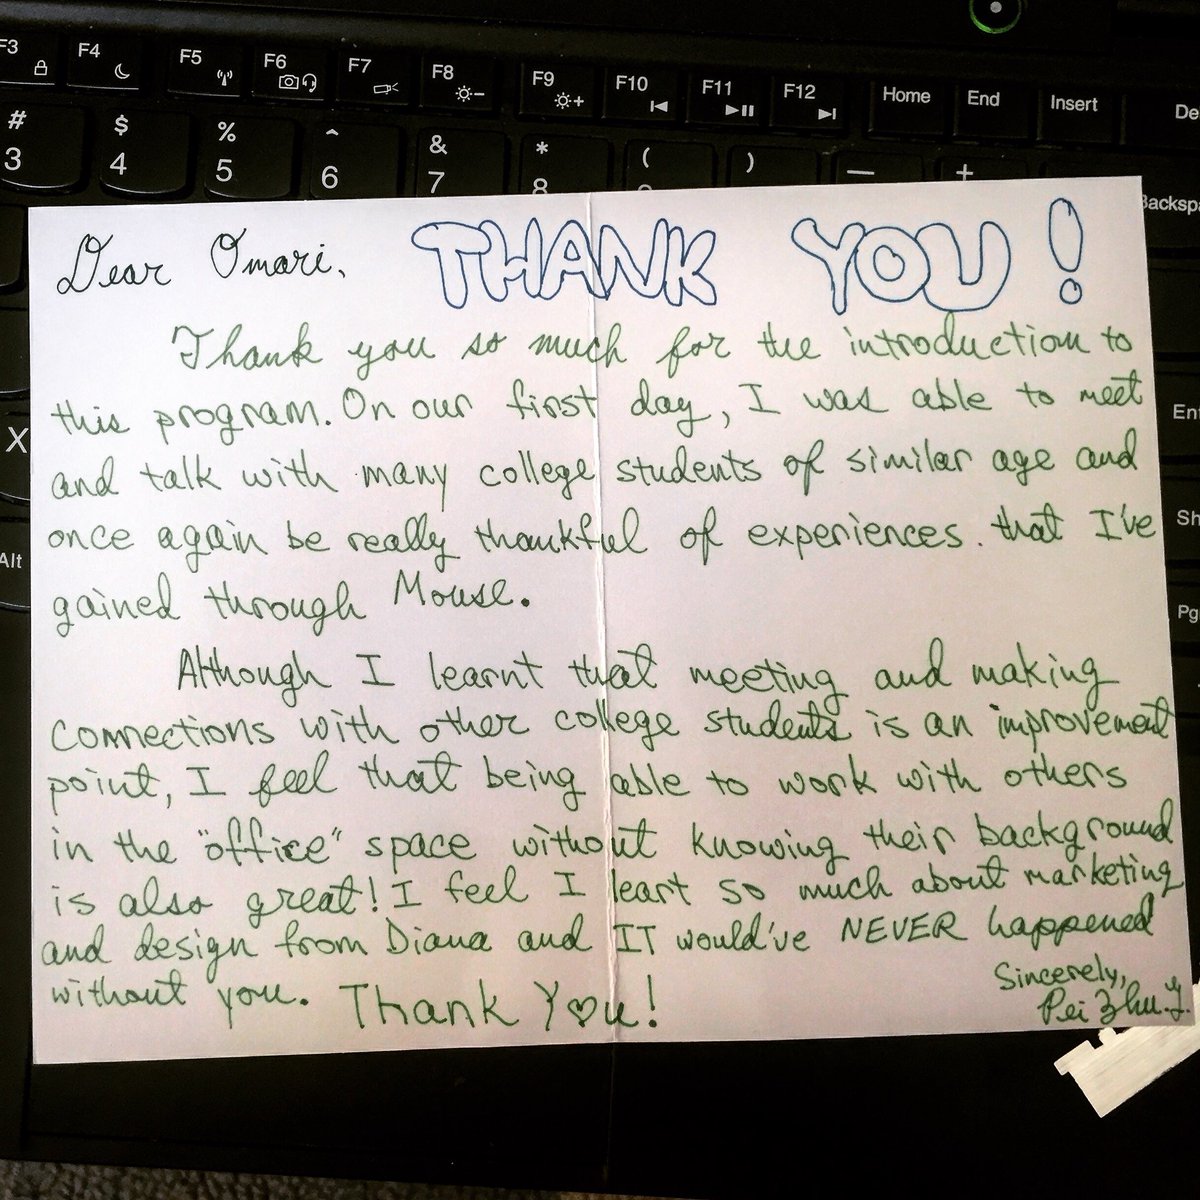 F3 F4 F5 F6 F7 F8 F9 F10 F11 F12 Home End Insert De
# $ % ^ & * ( ) — +
3 4 5 6 7 8
Backspa
X
Ent
Alt
Sh
Pg
Dear Omari, THANK YOU!
Thank you so much for the introduction to
this program. On our first day, I was able to meet
and talk with many college students of similar age and
once again be really thankful of experiences. that I've
gained through Mouse.
Although I learnt that meeting and making
connections with other college students is an improvement
point, I feel that being able to work with others
in the "office" space without knowing their background
is also great! I feel I leart so much about marketing
and design from Diana and IT would've NEVER happened
without you. Thank You!
Sincerely,
Pei Zhu.Y.